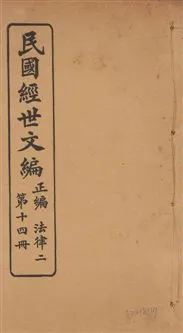 民國經世文編
正編 法律二
第十四冊